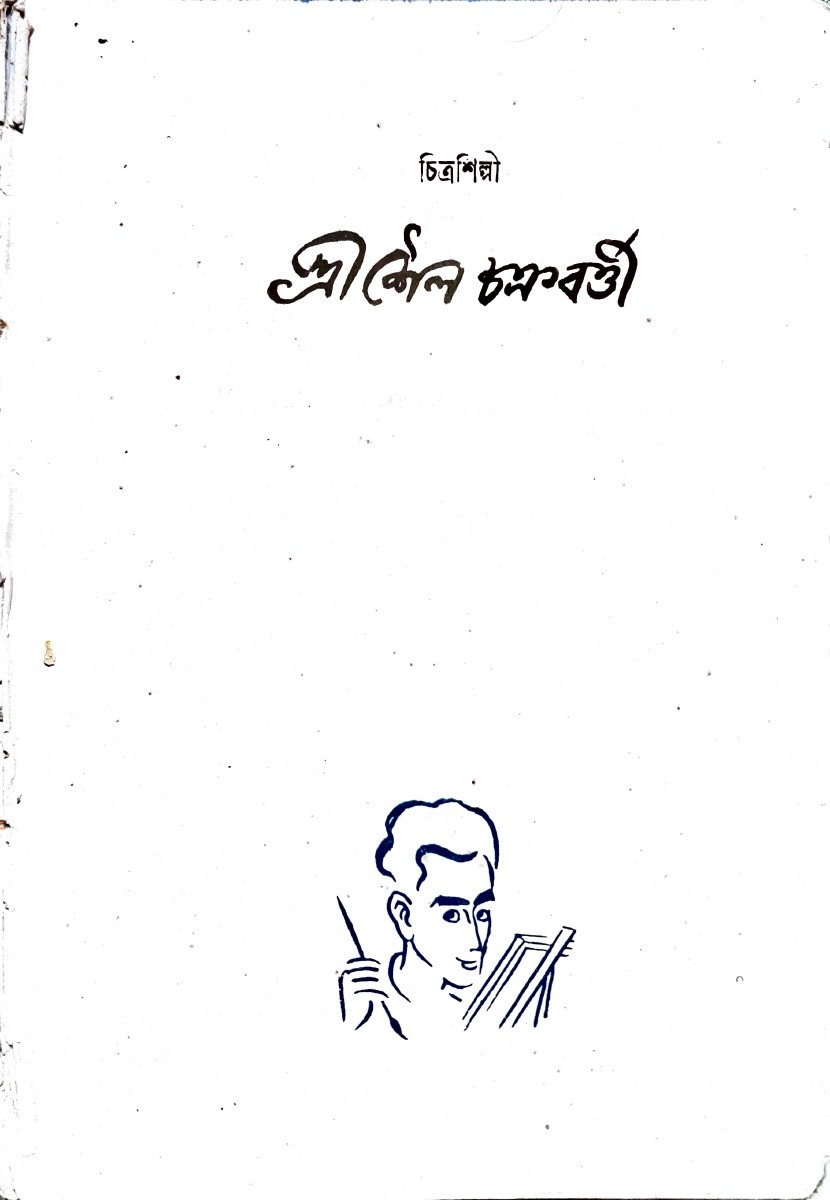 চিত্রশিল্পী
শ্রীশৈল চক্রবর্ত্তী